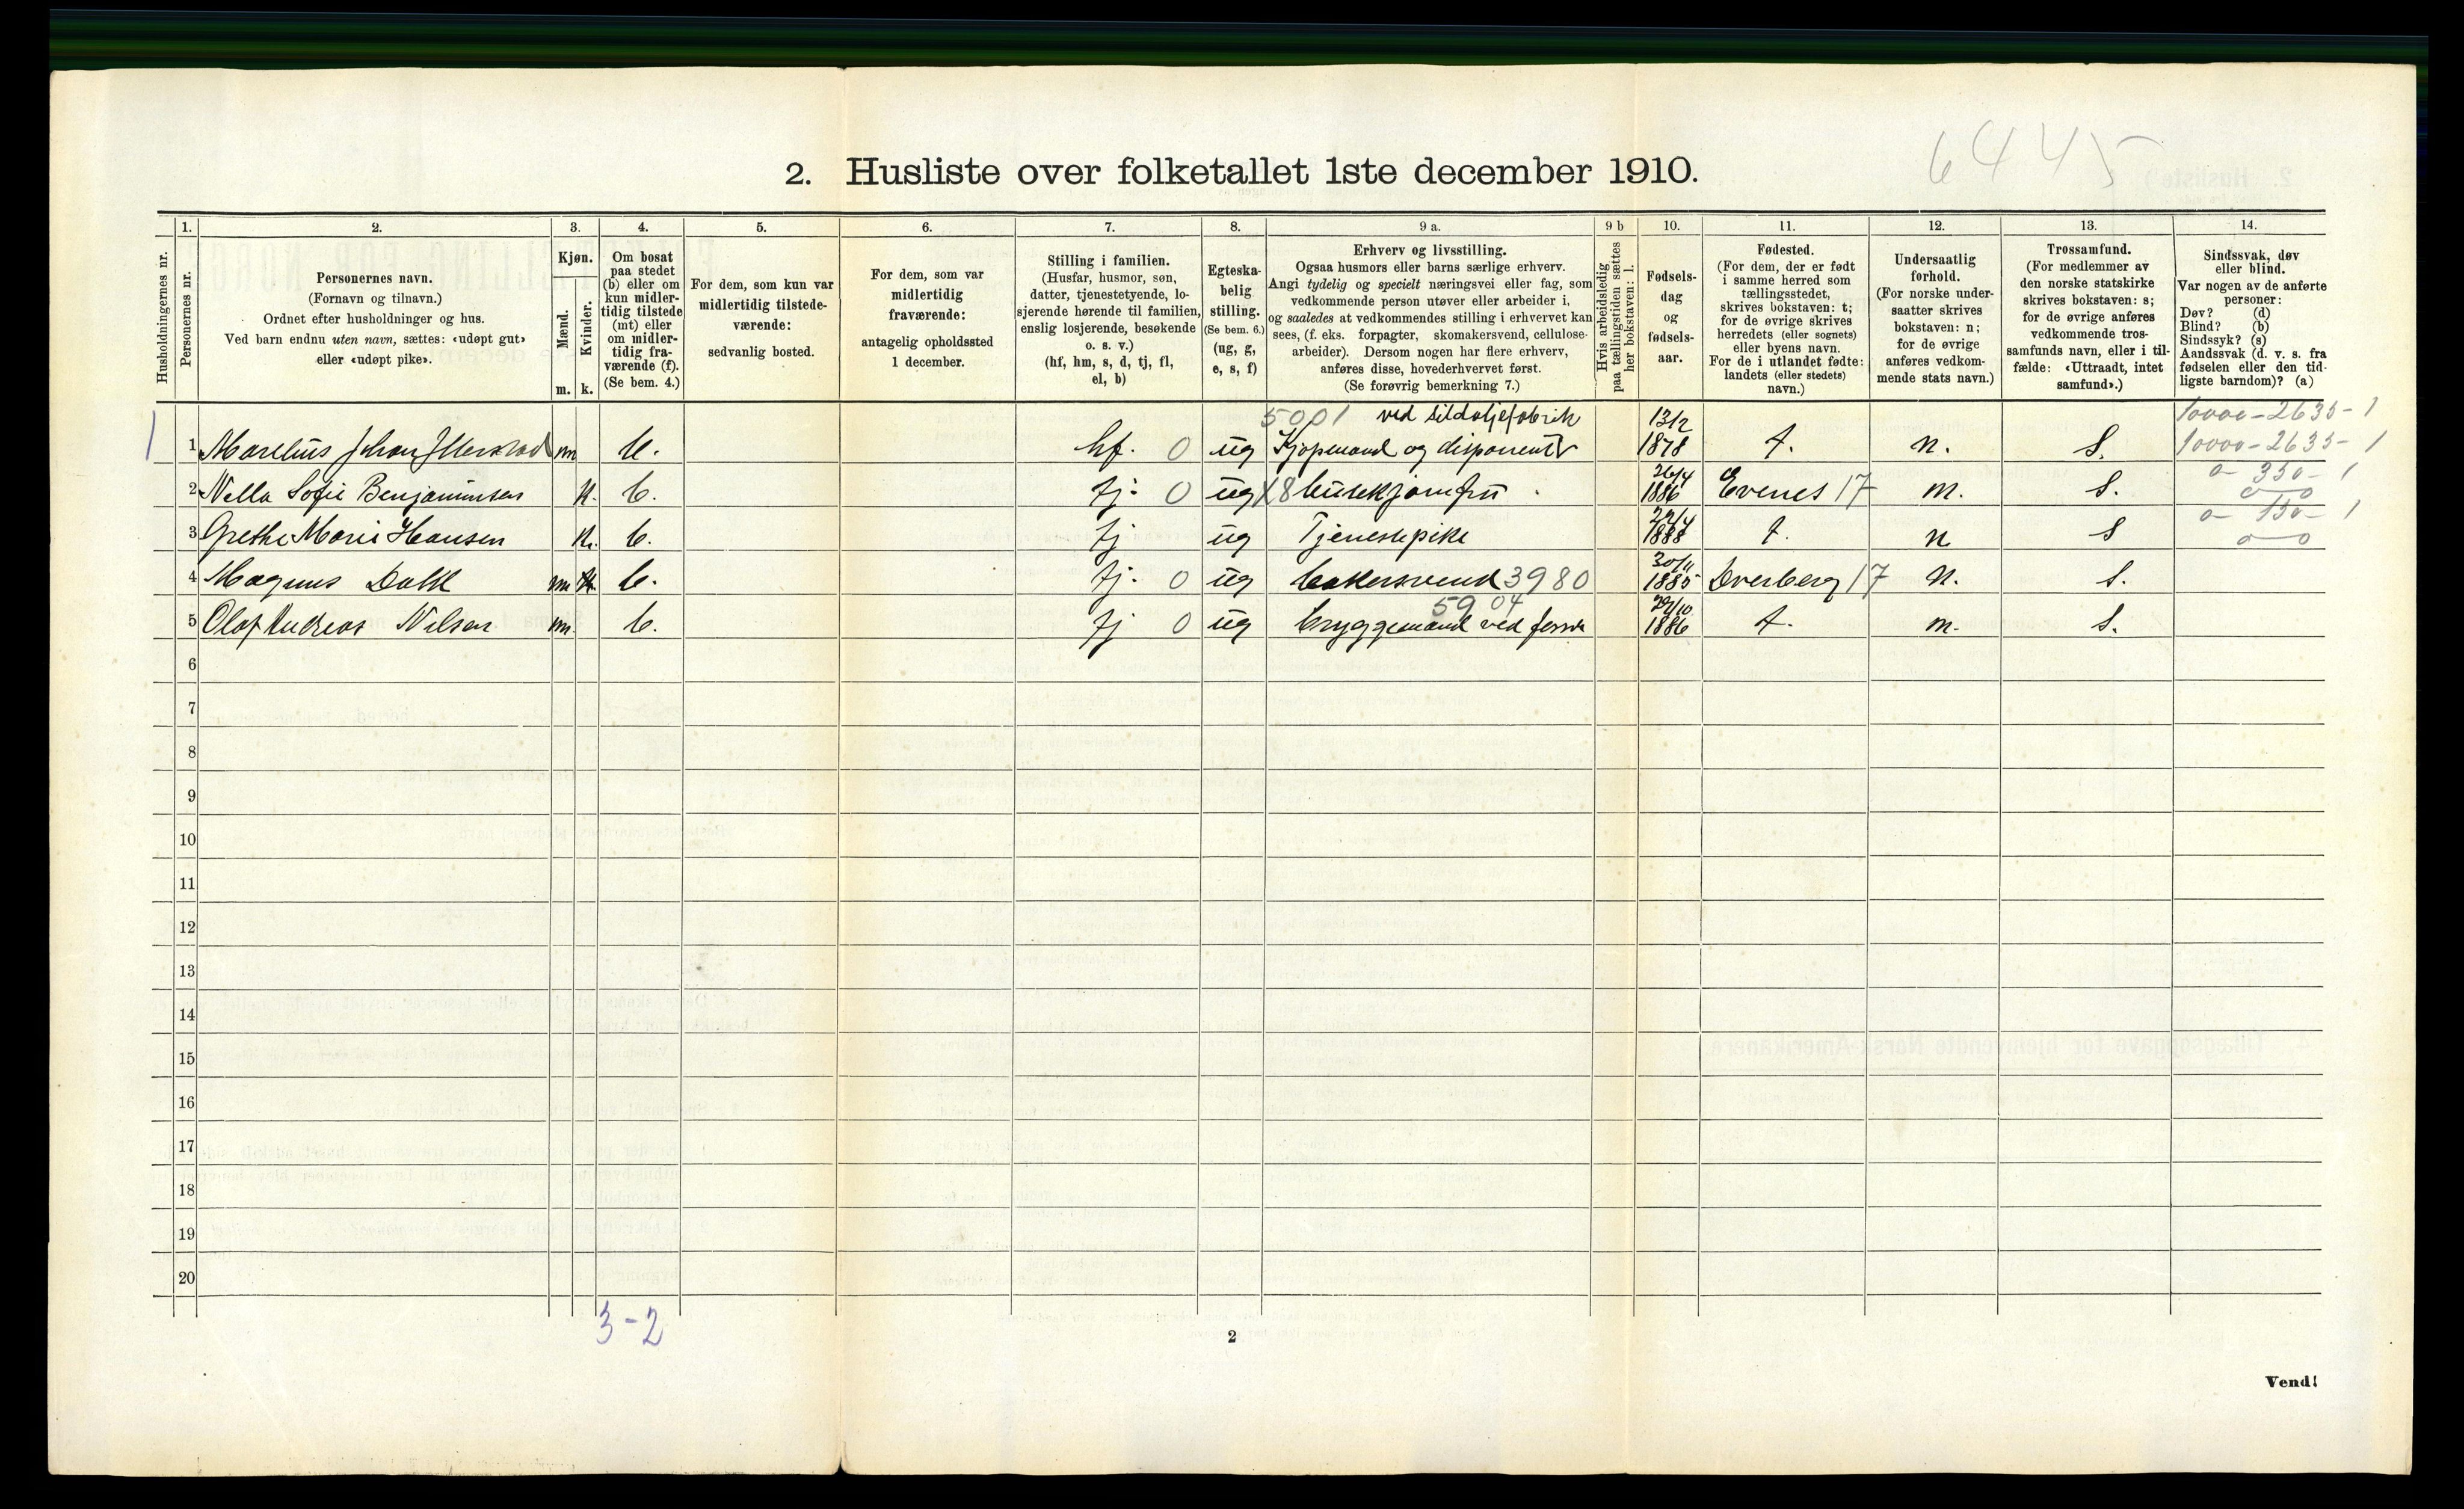 6445
2. Husliste over folketallet 1ste december 1910.
Husholdningernes nr.
1.
Personernes nr.
2.
Personernes navn.
(Fornavn og tilnavn.)
Ordnet efter husholdninger og hus.
Ved barn endnu uten navn, sættes: «udøpt gut»
eller «udøpt pike».
3.
Kjøn.
Mænd.
Kvinder.
m. k.
4.
Om bosat
paa stedet
(b) eller om
kun midler-
tidig tilstede
(mt) eller
om midler-
tidig fra-
værende (f).
(Se bem. 4.)
5.
For dem, som kun var
midlertidig tilstede-
værende:
sedvanlig bosted.
6.
For dem, som var
midlertidig
fraværende:
antagelig opholdssted
1 december.
7.
Stilling i familien.
(Husfar, husmor, søn,
datter, tjenestetyende, lo-
sjerende hørende til familien,
enslig losjerende, besøkende
o. s. v.)
(hf, hm, s, d, tj, fl,
el, b)
8.
Egteska-
belig
stilling.
(Se bem. 6.)
(ug, g,
e, s, f)
9 a.
Erhverv og livsstilling.
Ogsaa husmors eller barns særlige erhverv.
Angi tydelig og specielt næringsvei eller fag, som
vedkommende person utøver eller arbeider i,
og saaledes at vedkommendes stilling i erhvervet kan
sees, (f. eks. forpagter, skomakersvend, cellulose-
arbeider). Dersom nogen har flere erhverv,
anføres disse, hovederhvervet først.
(Se forøvrig bemerkning 7.)
9 b
Hvis arbeidsledig
paa tællingstiden sættes
her bokstaven: l.
10.
Fødsels-
dag
og
fødsels-
aar.
11.
Fødested.
(For dem, der er født
i samme herred som
tællingsstedet,
skrives bokstaven: t;
for de øvrige skrives
herredets (eller sognets)
eller byens navn.
For de i utlandet fødte:
landets (eller stedets)
navn.)
12.
Undersaatlig
forhold.
(For norske under-
saatter skrives
bokstaven: n;
for de øvrige
anføres vedkom-
mende stats navn.)
13.
Trossamfund.
(For medlemmer av
den norske statskirke
skrives bokstaven: s;
for de øvrige anføres
vedkommende tros-
samfunds navn, eller i til-
fælde: «Uttraadt, intet
samfund».)
14.
Sindssvak, døv
eller blind.
Var nogen av de anførte
personer:
Døv? (d)
Blind? (b)
Sindssyk? (s)
Aandssvak (d. v. s. fra
fødselen eller den tid-
ligste barndom)? (a)
5001 ved sildoljefabrik 13/2 10000-2635-1
1 1 Marelius Johan m b. hf. 0 ug Kjøpmand og disponent 1878 t. n. S. 10000-2635-1
26/4 0- 350- 1
2 Nella Sofie Benjaminsen k. b. tj. 0 ug X8 busekjomfru 1886 Evenes 17 n. S. 0 0
29/4 0- 150- 1
3 Grethe Marie Hansen k. b. tj ug Tjenestepike 1888 t. n S 0 0
30/11
4 Magnus Dahl m b. tj. 0 ug bakersvend 3980 1885 Dverberg 17 n. S.
5904 29/10
5 Olaf Andreas Nilsen m. b. tj 0 ug bryggemand ved 1886 t. n. S.
6
7
8
9
10
11
12
13
14
15
16
17
18
19
20
3-2
2
Vend!